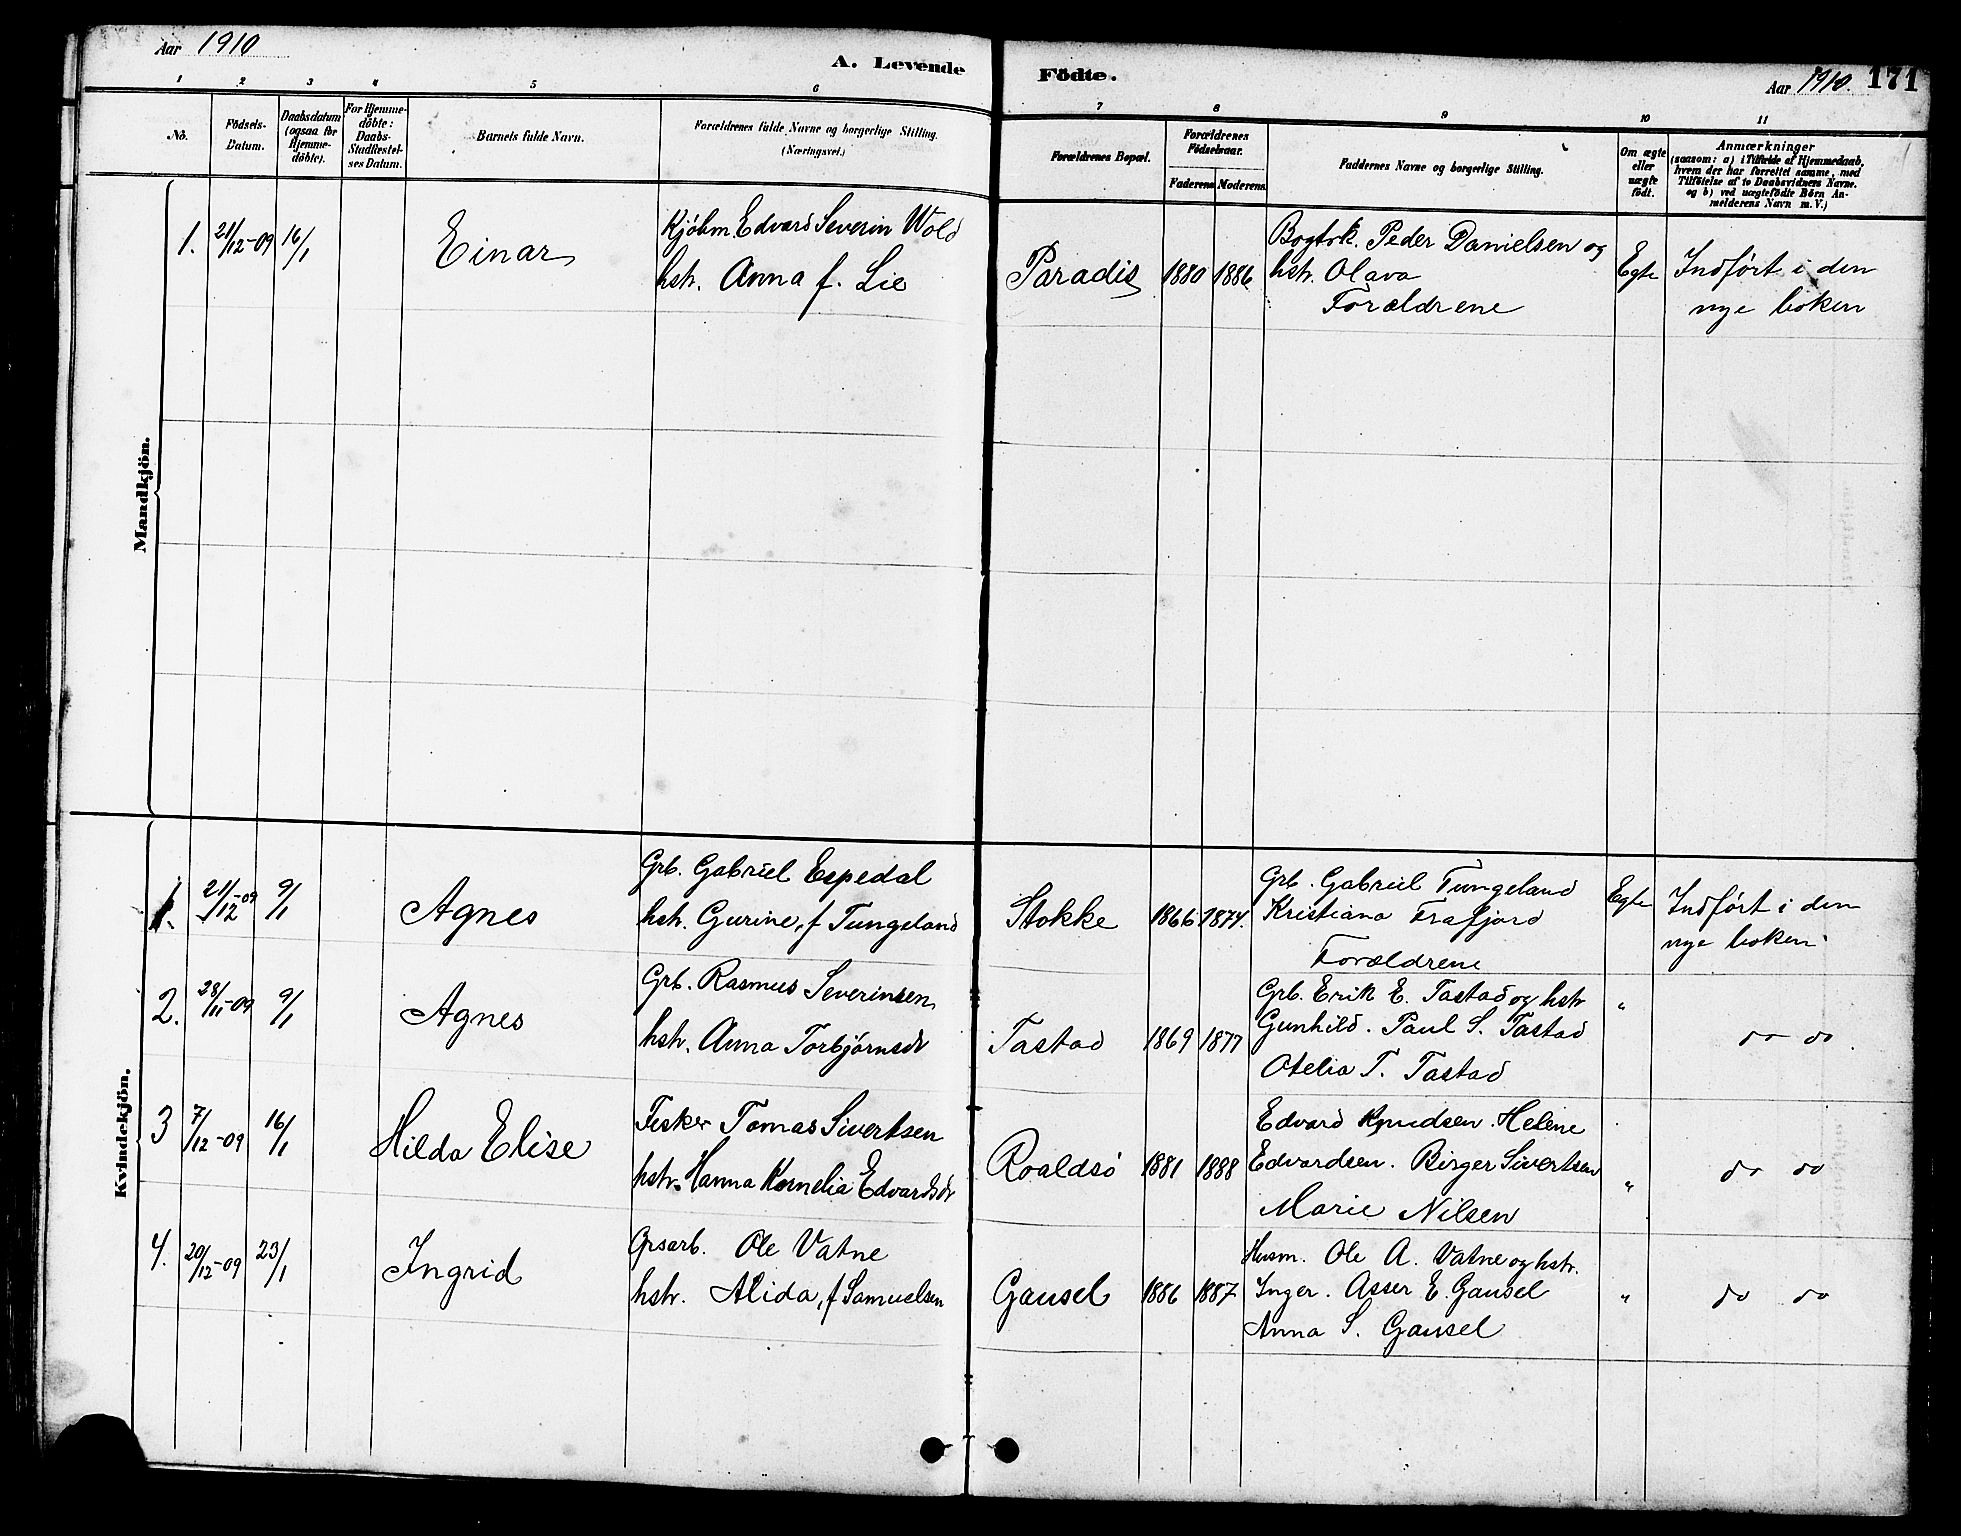 Aar 1910
A. Levende Födte.
Aar 1910. 171
1 2 3 4 5 6 7 8 9 10 11
Nö.
Födsels-
Datum.
Daabsdatum
(ogsaa for
Hjemme-
döbte).
For Hjemme-
döbte:
Daabs-
Stadfestel-
ses Datum.
Barnets fulde Navn.
Forældrenes fulde Navne og borgerlige Stilling.
(Næringsvei.)
Forældrenes Bopæl.
Forældrenes
Födselsaar.
Faderens Moderens
Faddernes Navne og borgerlige Stilling.
Om ægte
eller
uægte
födt.
Anmærkninger
(saasom: a) i Tilfælde af Hjemmedaab,
hvem der har forrettet samme, med
Tilföielse af to Daabsvidners Navne.
og b) ved uægtefödte Börn An-
melderens Navn m. V.)
Mandkjön.
1. 21/12-09 16/1 Einar
Kjøbm. Edvard Severin Wold
hstr. Anna f. Lie
Paradis 1880 1886
Bogtrk. Peder Danielsen og
hstr. Olava
Forældrene
Egte
Indført i den
nye boken
Kvindekjön.
1. 21/12-09 9/1 Agnes
Grb. Gabriel Espedal
hstr. Gurine, f Tungeland
Stokke 1866 1874.
Grb. Gabriel Tungeland
Kristiana Frafjord
Forældrene
Egte
Indført i den
nye boken
2. 28/11-09 9/1 Agnes
Grb. Rasmus Severinsen
hstr. Anna Torbjørnsdr
Tastad 1869 1877
Grb. Erik E. Tastad og hstr
Gunhild. Paul S. Tastad
Otelia T. Tastad
" do do
3 7/12-09 16/1 Hilda Elise
Fisker Tomas Sivertsen
hstr. Hanna Kornelia Edvardsdr
Roaldsø 1881 1888
Edvard Knudsen. Helene
Edvardsen. Birger Sivertsen
Marie Nilsen
" do do
4. 20/12-09 23/1 Ingrid
Grsarb. Ole Vatne
hstr. Alida, f Samuelsen
Gausel 1886 1887
Husm. Ole A. Vatne og hstr.
Inger. Asser E. Gausel
Anna S. Gausel
" do do